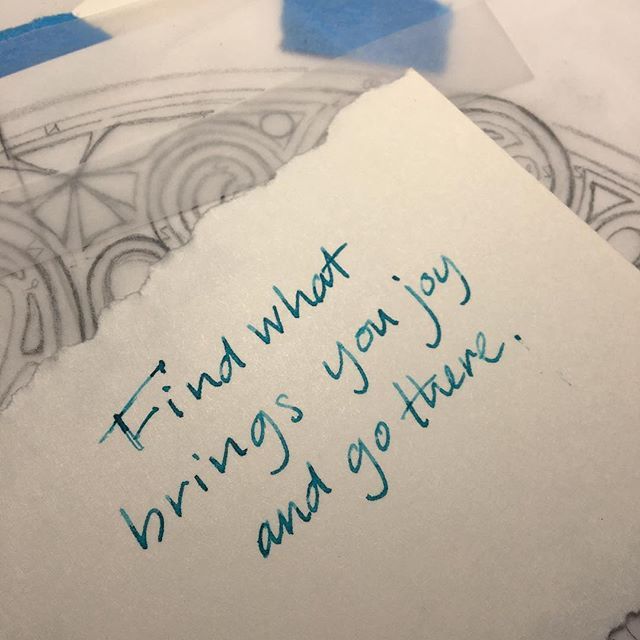 Find what
brings you joy
and go there.